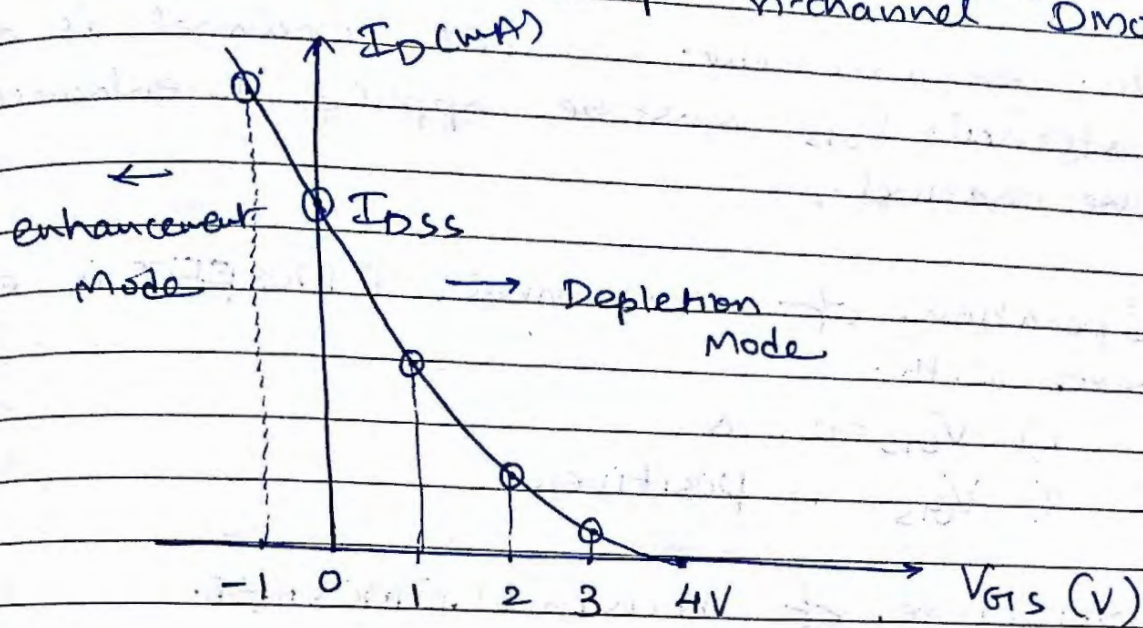 n-channel DMO
I_D (mA)
←
enhancement
Mode
I_DSS
→ Depletion
Mode
-1 0 1 2 3 4V V_GS (V)